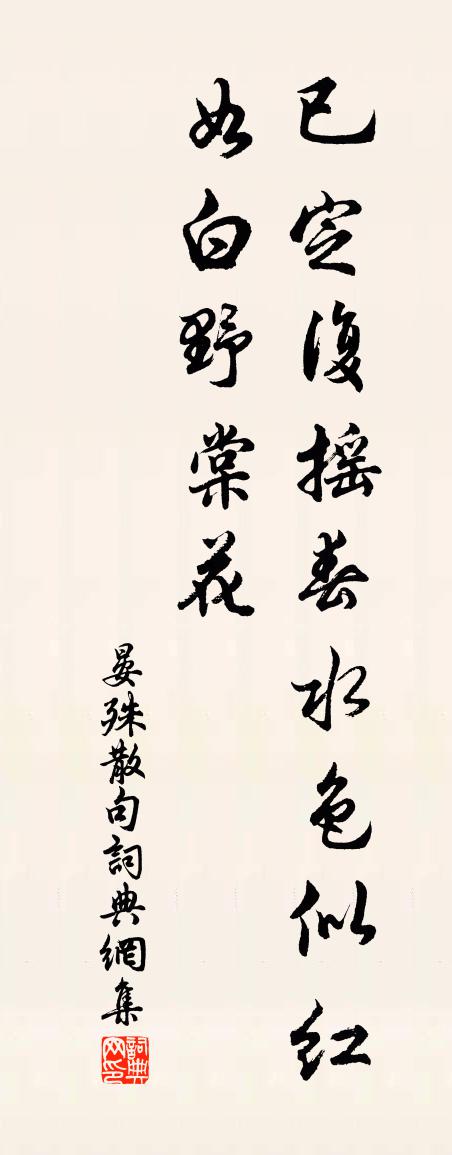 已定復摇春水色似紅
如白野棠花
晏殊散句詞典網集
詞典网印